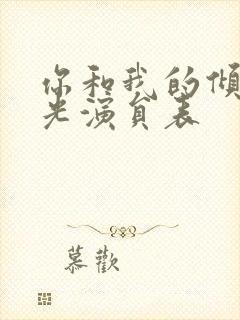 你和我的倾
光演员表
慕歡